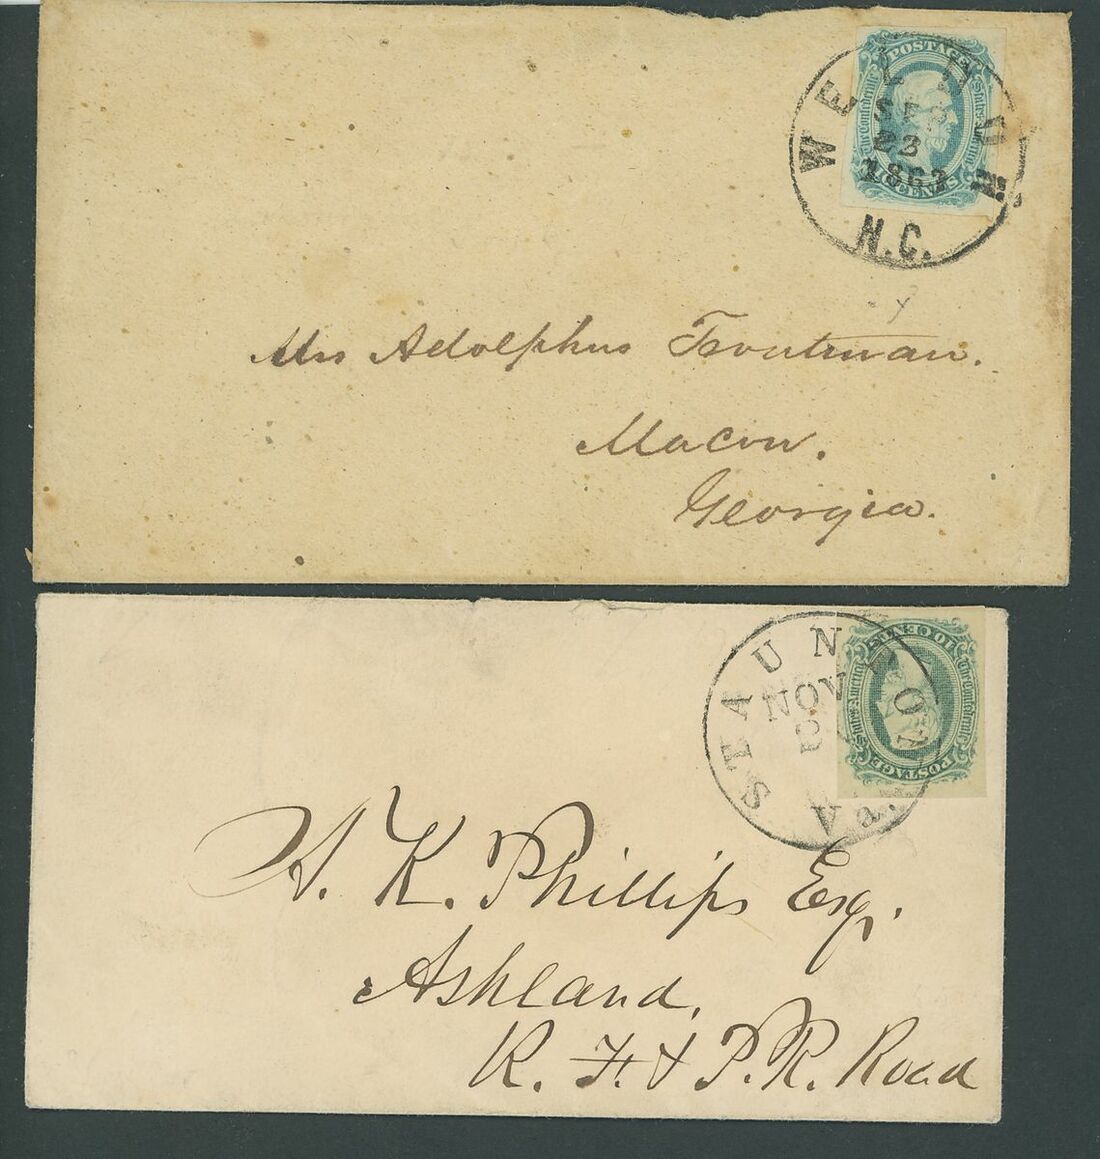 WELDON, N.C.
SEP
23
1863
POSTAGE
The Confederate States America
CENTS
Mrs Adolphus Troutman.
Macon.
Georgia.
STAUNTON Va.
NOV
10 CENTS
The Confederate States America
POSTAGE
A. K. Phillips Esq.
Ashland,
R. F. & P. R. Road